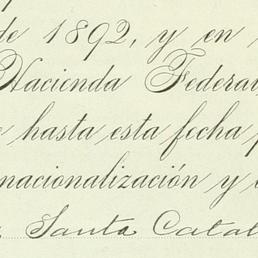 de 1892, y en
Hacienda Federal
hasta esta fecha
nacionalización y
Santa Catal